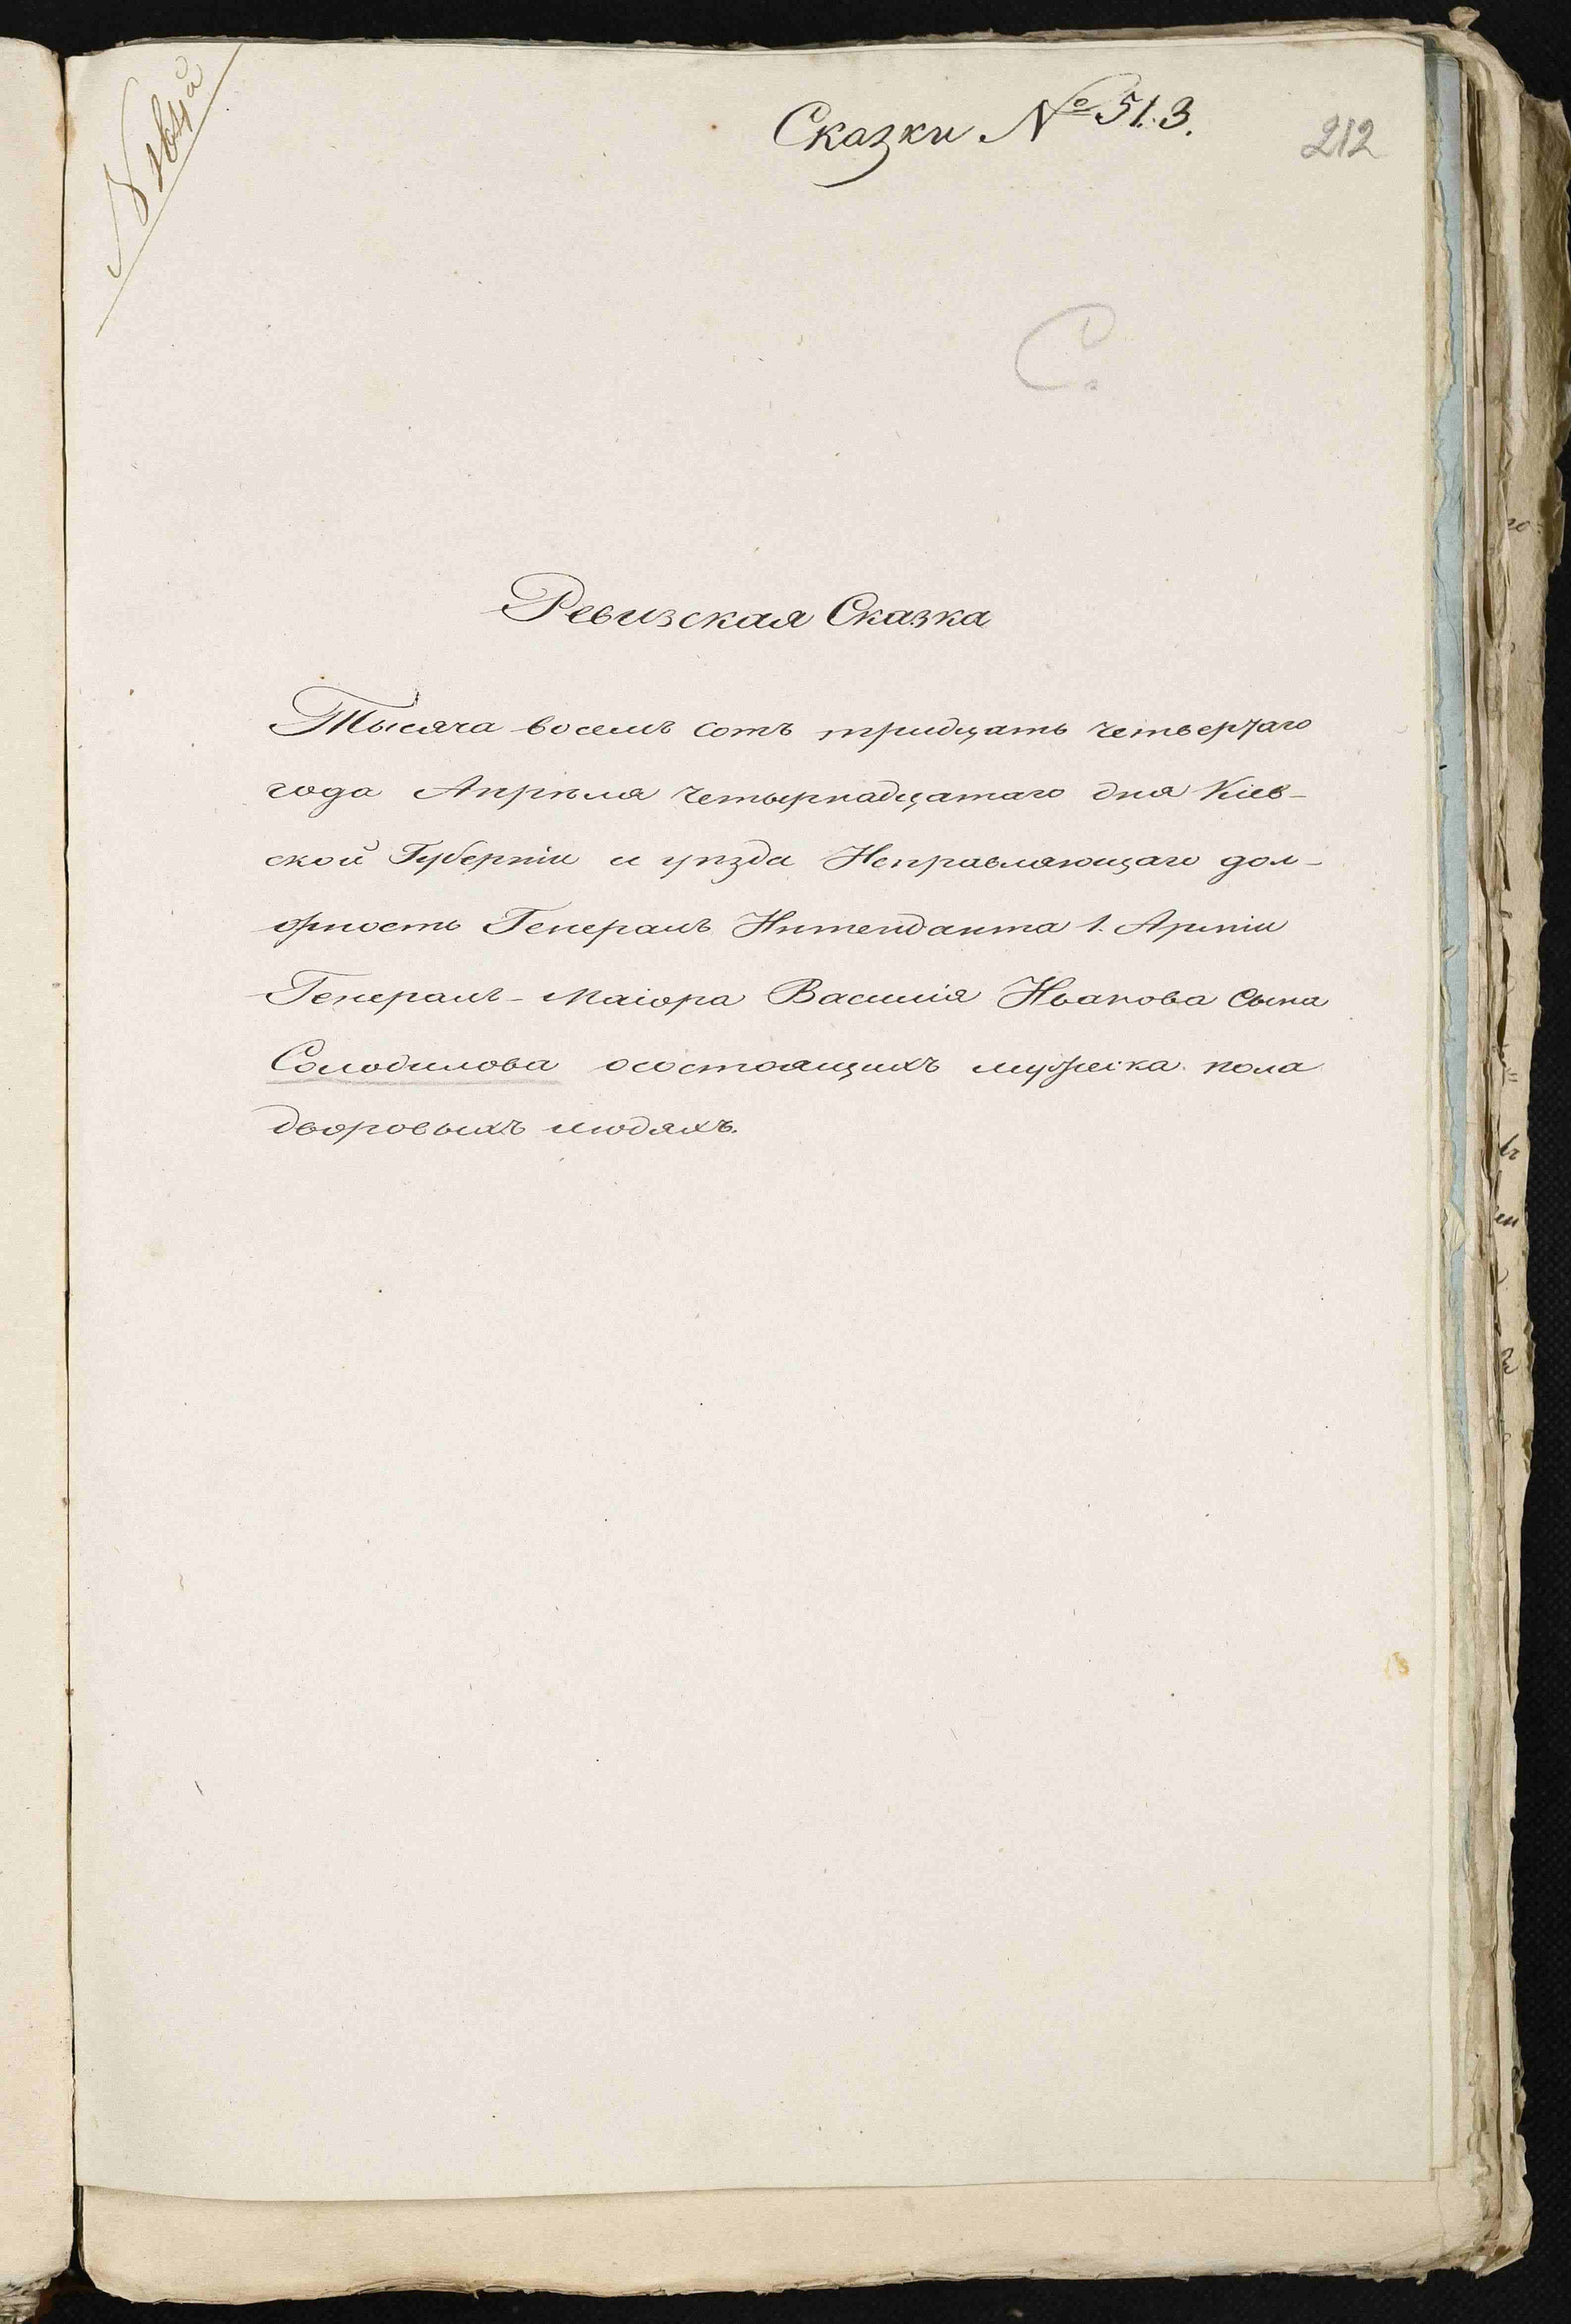 Сказки № 51.3.
212
С.
Ревизская Сказка
Тысяча восемъ сотъ тридцать четвертаго
года Апрѣля четырнадцатаго дня Кіев-
ской Губерніи и уѣзда Исправляющаго дол-
жность Генералъ Интенданта 1. Арміи
Генералъ-Маіора Василія Иванова сына
Солодилова осостоящихъ мужеска пола
дворовыхъ людяхъ.